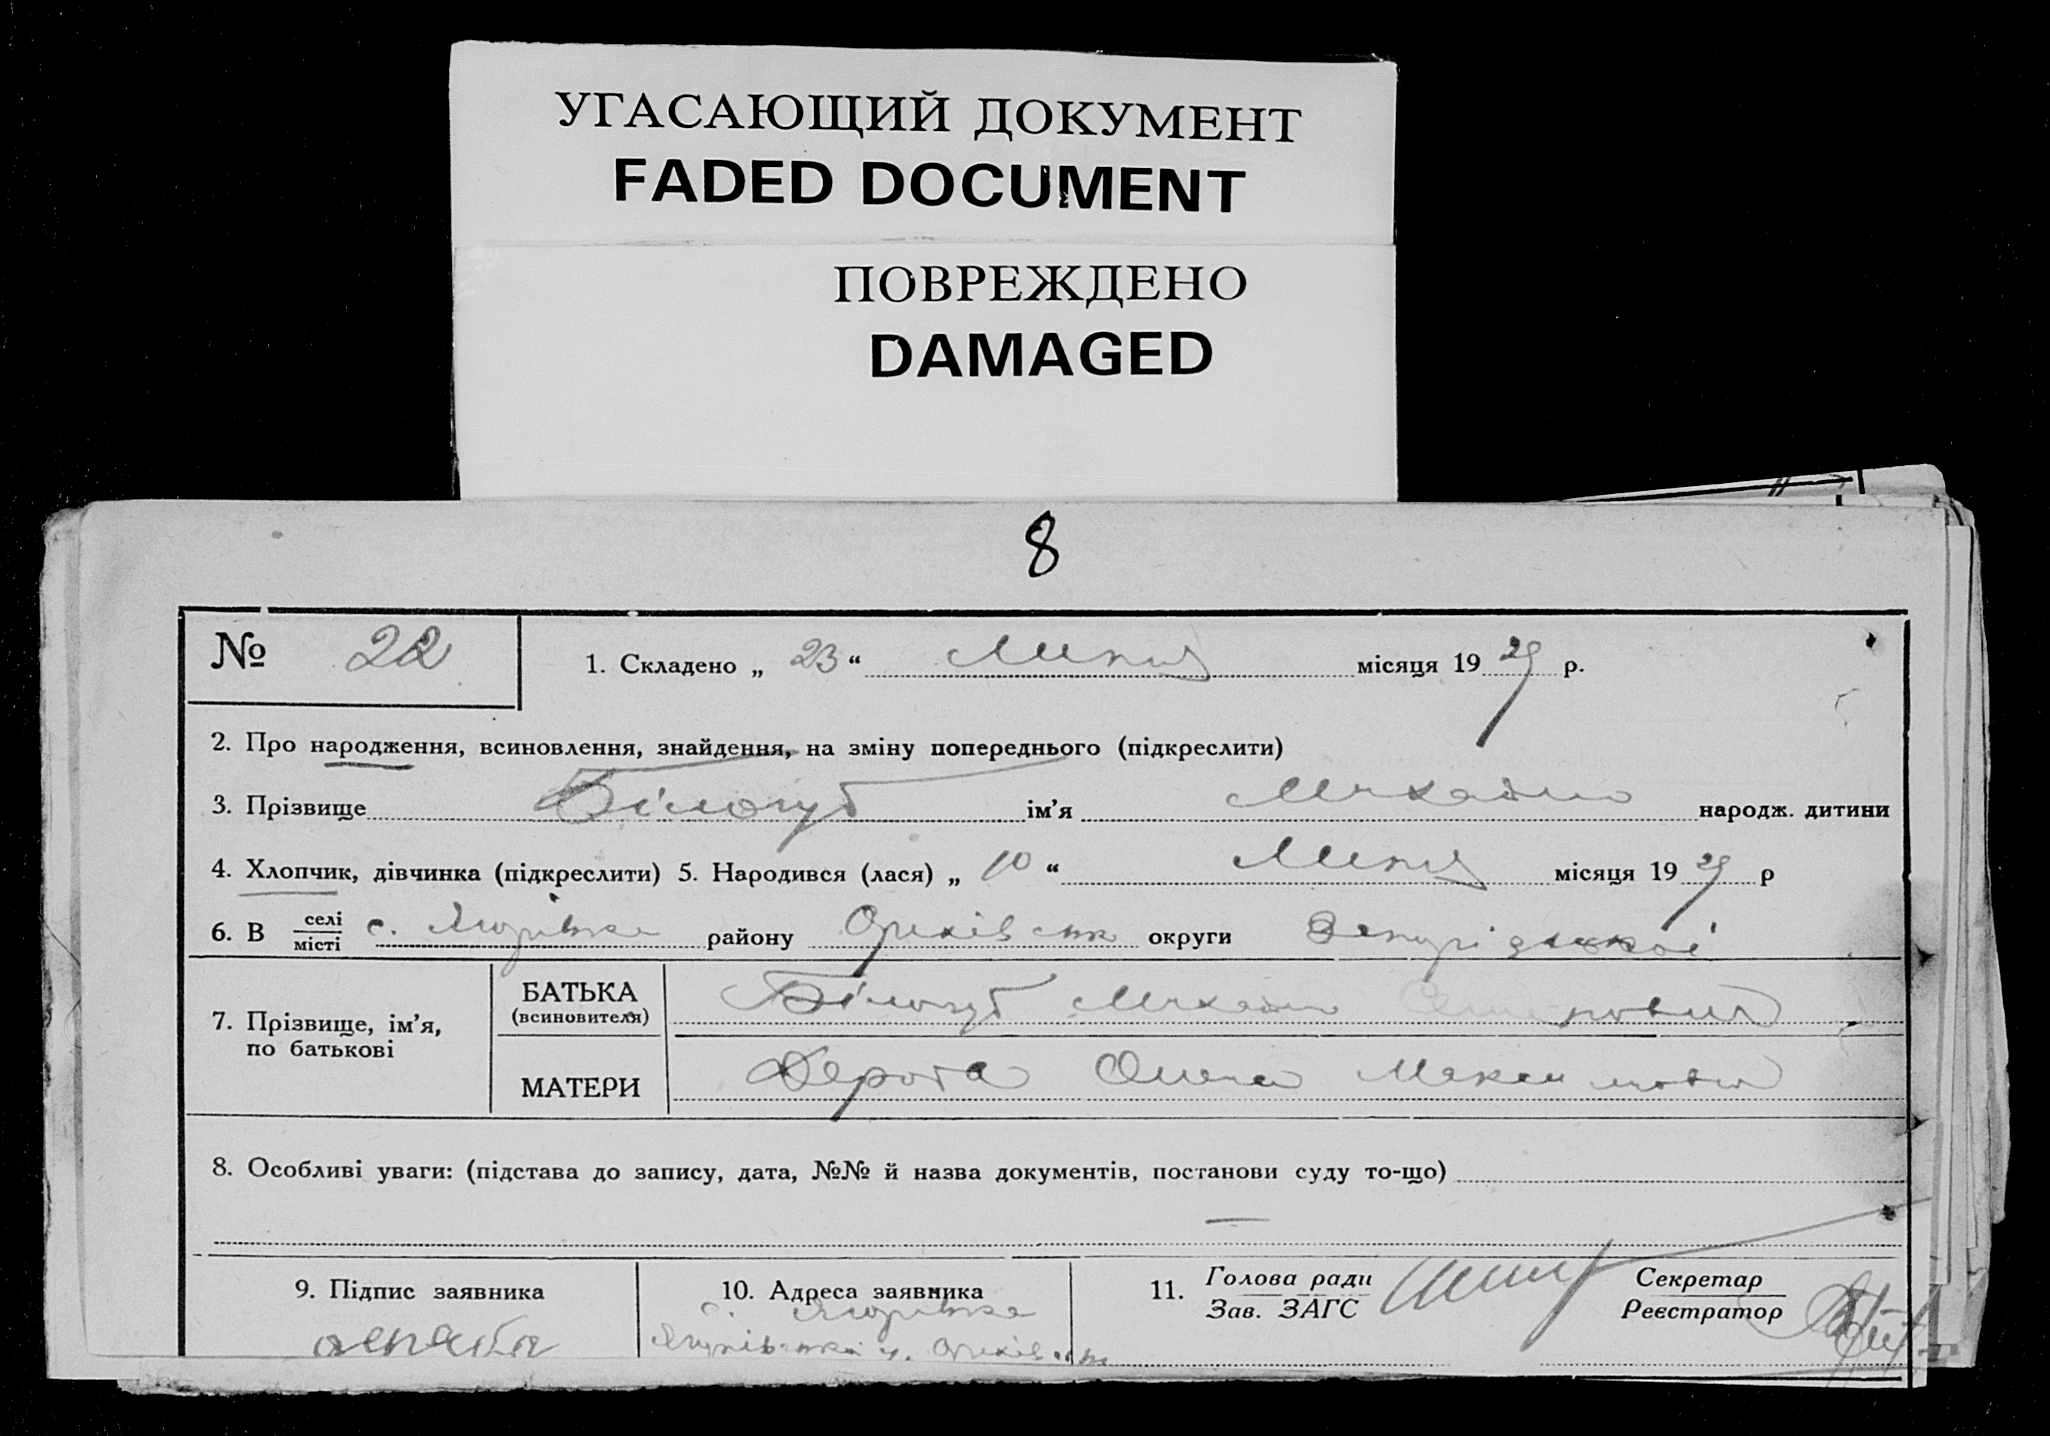 УГАСАЮЩИЙ ДОКУМЕНТ
FADED DOCUMENT
ПОВРЕЖДЕНО
DAMAGED
8
№ 22
1. Складено „ 23 “ Липня місяця 1929 р.
2. Про народження, всиновлення, знайдення, на зміну попереднього (підкреслити)
3. Прізвище Білогуб ім’я Михайло народж. дитини
4. Хлопчик, дівчинка (підкреслити) 5. Народився (лася) „ 10 “ Липня місяця 1929 р
6. В селі місті с. району Оріхівськ округи Запорізької
7. Прізвище, ім’я, по батькові
БАТЬКА (всиновителя) Білогуб Михайло
МАТЕРИ Олена Максимовна
8. Особливі уваги: (підстава до запису, дата, №№ й назва документів, постанови суду то-що)
—
9. Підпис заявника
10. Адреса заявника
с.
11. Голова ради
Зав. ЗАГС
Секретар
Реєстратор